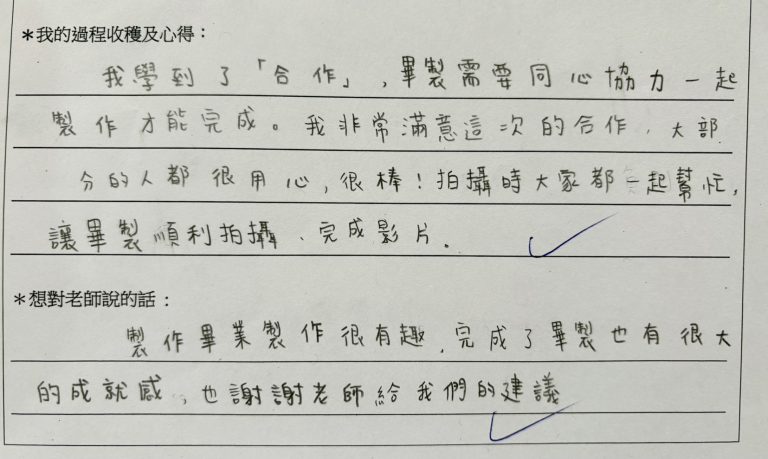 ＊我的過程收穫及心得：
我學到了「合作」，畢製需要同心協力一起
製作才能完成。我非常滿意這次的合作，大部
分的人都很用心，很棒！拍攝時大家都一起幫忙，
讓畢製順利拍攝、完成影片。
＊想對老師說的話：
製作畢業製作很有趣，完成了畢製也有很大
的成就感，也謝謝老師給我們的建議